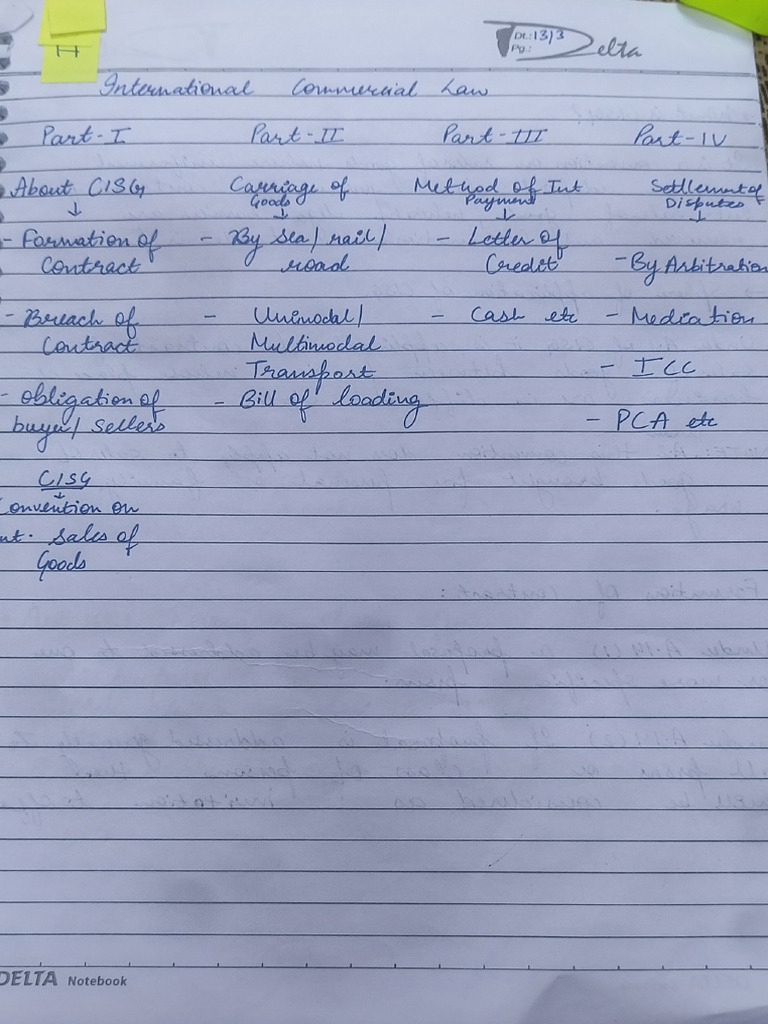 H
Dt.: 13/3
Pg.:
Delta
International Commercial Law
Part-I Part-II Part-III Part-IV
About CISG
↓
- Formation of
Contract
- Breach of
Contract
- Obligation of
buyer/ Sellers
CISG
↓
Convention on
nt. Sales of
Goods
Carriage of
Goods
↓
- By Sea/ rail/
road
- Unimodal/
Multimodal
Transport
- Bill of loading
Method of Int
Payment
↓
- Letter of
Credit
- Cash etc
Settlement of
Disputes
↓
- By Arbitration
- Mediation
- ICC
- PCA etc
DELTA Notebook